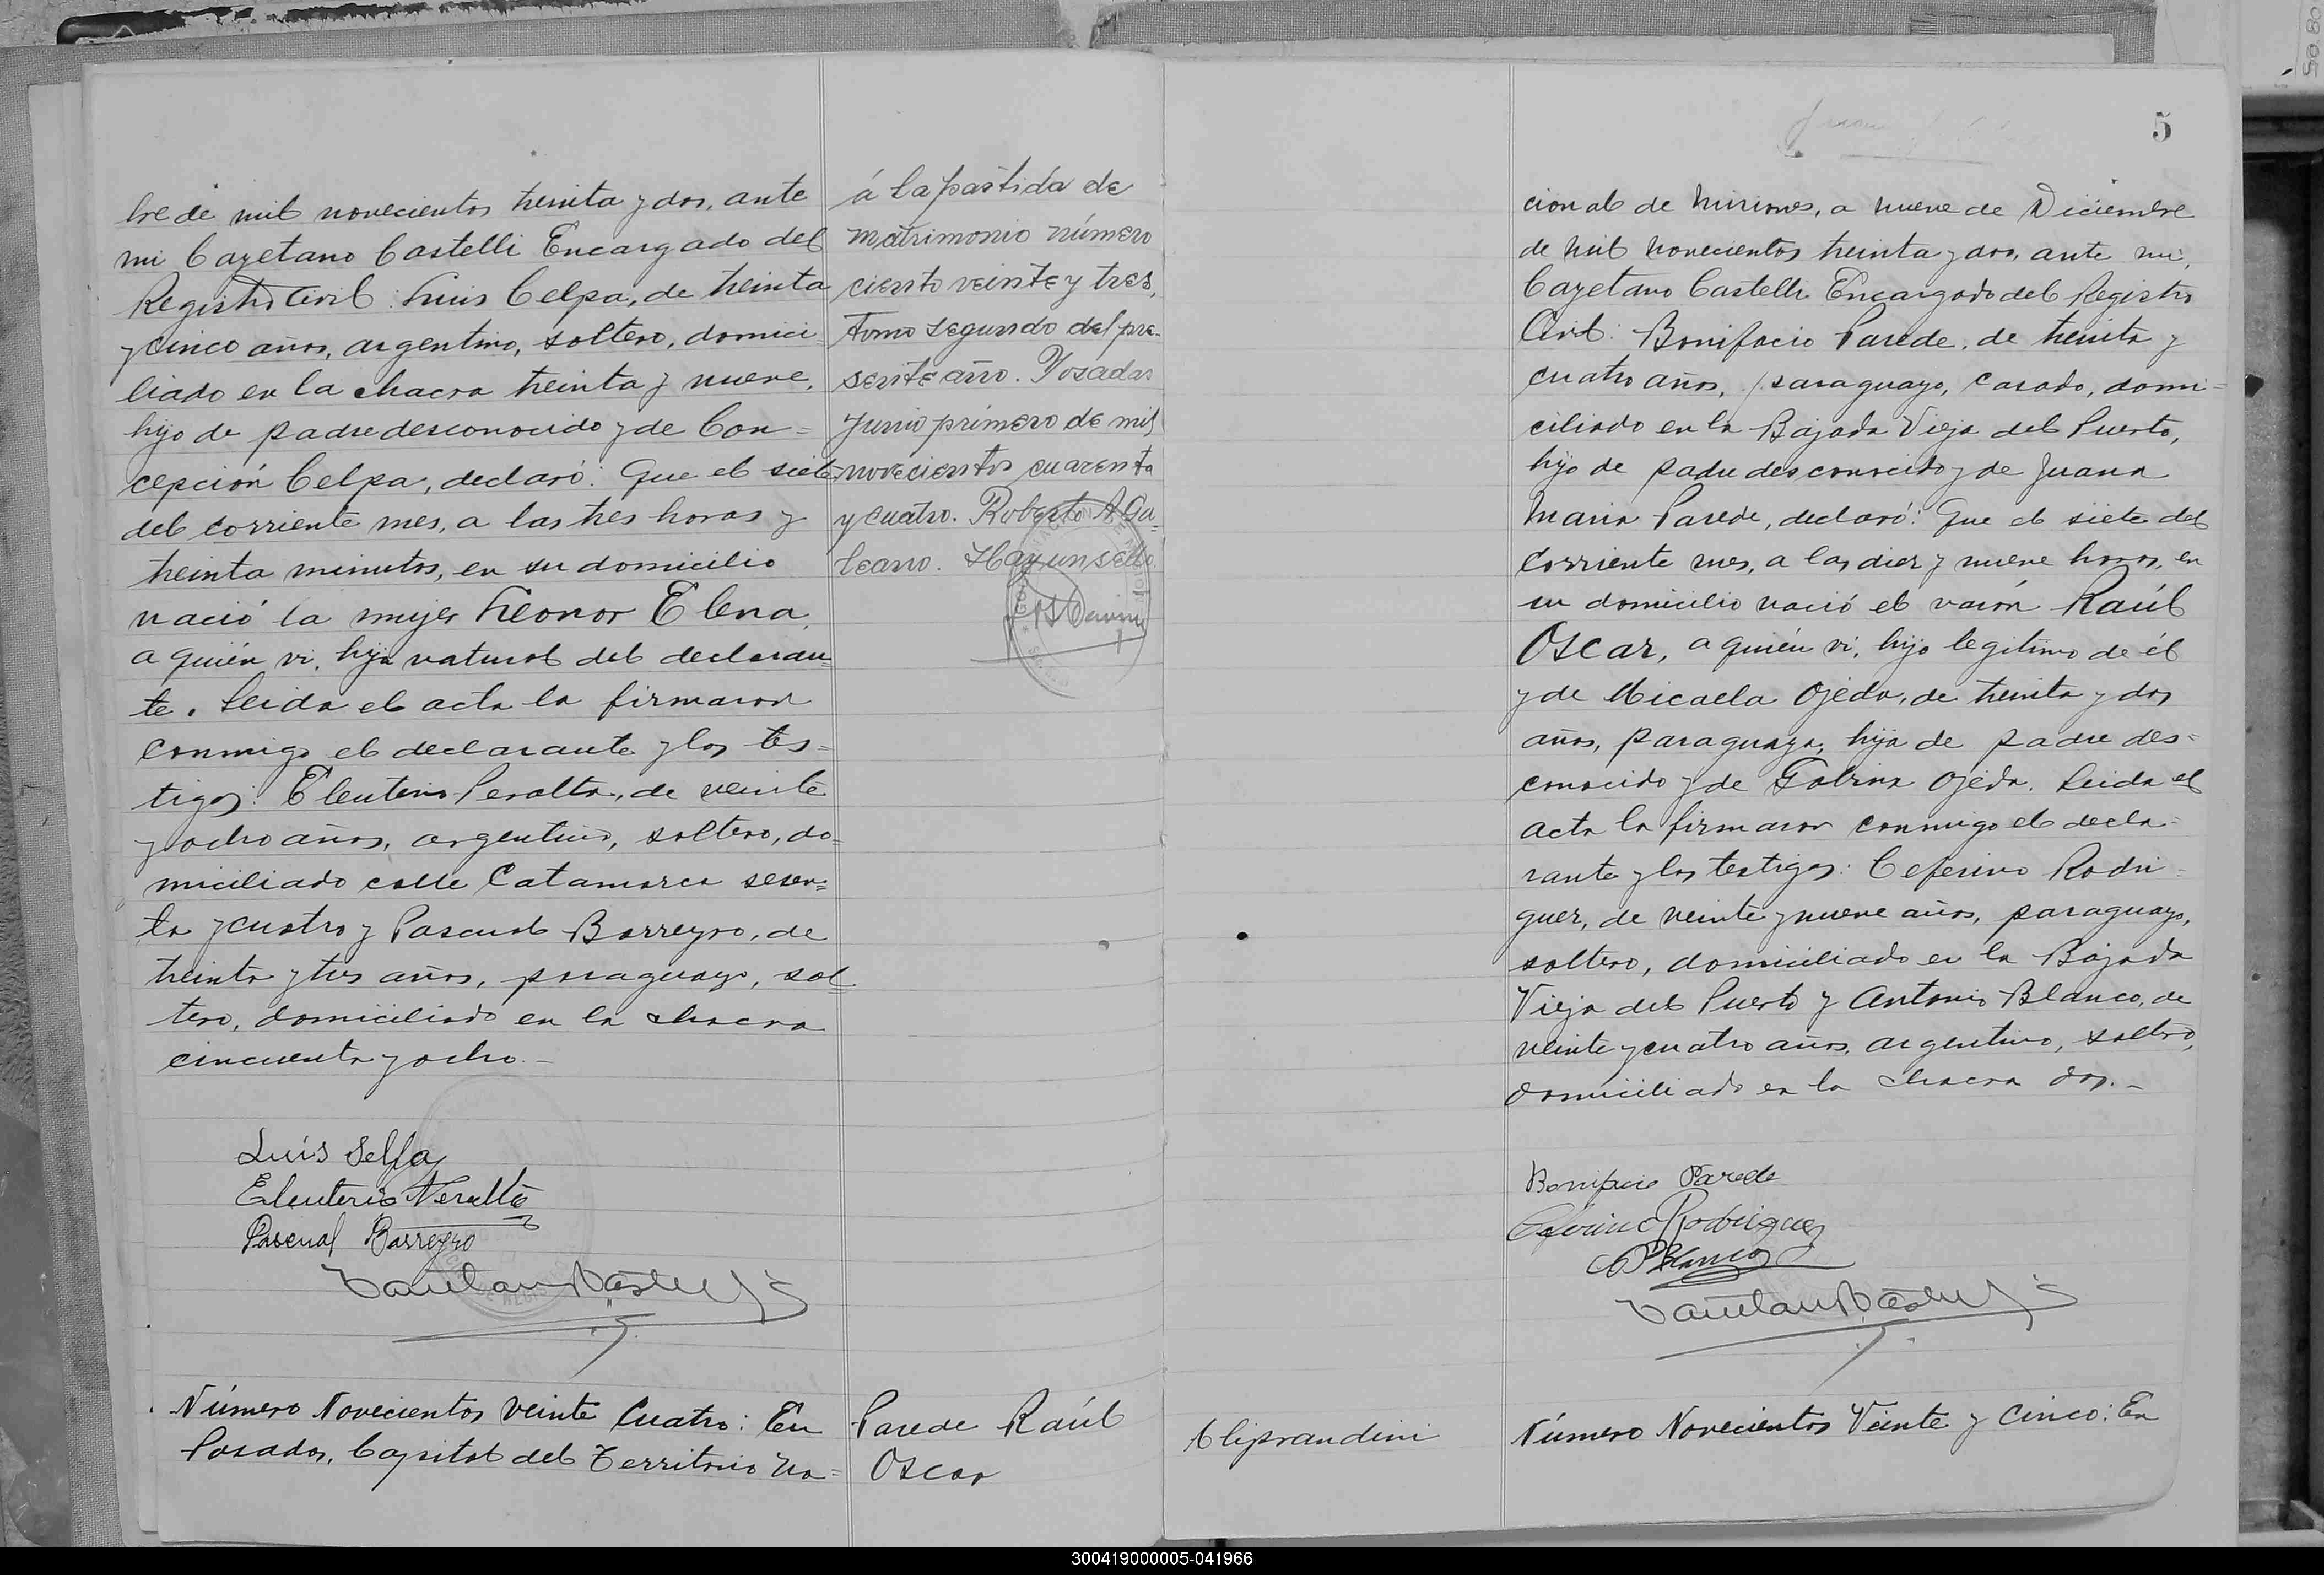 bre de mil novecientos treinta y dos, ante
mi Cayetano Castelli Encargado del
Registro Civil: Luis Celpa, de treinta
y cinco años, argentino, soltero, domici
liado en la chacra treinta y nueve,
hijo de padre desconocido y de Con=
cepción Celpa, declaró: Que el siete
del corriente mes, a las tres horas y
treinta minutos, en su domicilio
nació la mujer Leonor Elena,
a quién vi, hija natural del declaran=
te. Leida el acta la firmaron
conmigo el declarante y los tes=
tigos: Eleuterio Peralta, de veinte
y ocho años, argentino, soltero, do=
miciliado calle Catamarca sesen=
ta y cuatro y Pascual Barreyro, de
treinta y tres años, paraguayo, sol=
tero, domiciliado en la chacra
cincuenta y ocho.-
Luis Selpa
Eleuterio Peralta
Pascual Barreyro
Número Novecientos veinte cuatro: En
Posadas, Capital del Territorio Na=
á la partida de
matrimonio número
ciento veinte y tres,
tomo segundo del pre-
sente año. Posadas
Junio primero de mil
novecientos cuarenta
y cuatro. Roberto A Ga-
leano. Hay un sello.
Parede Raúl
Oscar
5
cional de Misiones, a nueve de Diciembre
de mil novecientos treinta y dos, ante mi,
Cayetano Castelli Encargado del Registro
Civil: Bonifacio Parede, de treinta y
cuatro años, paraguayo, casado, domi=
ciliado en la Bajada Vieja del Puerto,
hijo de padre desconocido y de Juana
Maria Parede, declaró: Que el siete del
corriente mes, a las diez y nueve horas, en
su domicilio nació el varón Raúl
Oscar, a quién vi, hijo legítimo de él
y de Micaela Ojeda, de treinta y dos
años, paraguaya, hija de padre des=
conocido y de Gabina Ojeda. Leida el
acta la firmaron conmigo el decla=
rante y los testigos: Ceferino Rodri=
guez, de veinte y nueve años, paraguayo,
soltero, domiciliado en la Bajada
Vieja del Puerto y Antonio Blanco, de
veinte y cuatro años, argentino, soltero,
domiciliado en la chacra dos.-
Bonifacio Parede
Ceferino Rodriguez
A Blanco
Aliprandini
Número Novecientos Veinte y Cinco: En
300419000005-041966